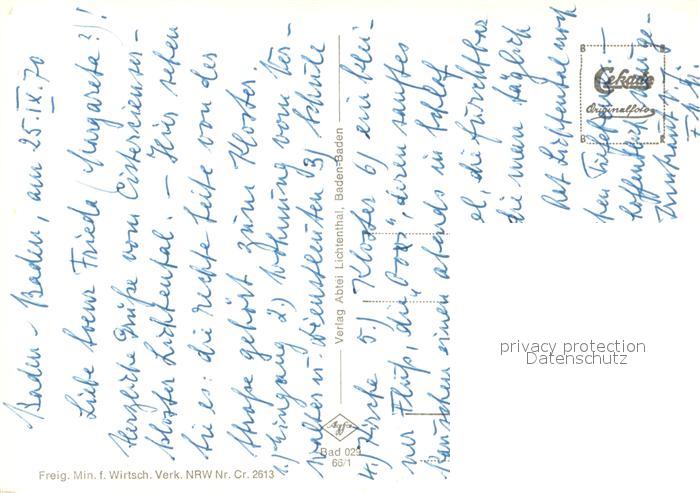 Baden-Baden, am 25.IX.70
Liebe Soeur Frieda (Margareta?)!
Herzliche Grüße vom Cistercienser-
kloster Lichtental. – Hier sehen
Sie es: die rechte Seite von der
Straße gehört zum Kloster.
1.) Eingang 2) Wohnung vom Ver-
walter u. Dienstleuten 3) Schule
4.) Kirche 5.) Kloster 6) ein klei-
ner Fluß, die „Oos“, deren sanftes
Rauschen einen abends in Schlaf
die furchtbar
die man täglich
hat Lichtental noch
hoffentlich
Verlag Abtei Lichtenthal, Baden-Baden
Agfa
Bad 029
66/1
Freig. Min. f. Wirtsch. Verk. NRW Nr. Cr. 2613
Cekade
Originalfoto
B
B
B
B
privacy protection
Datenschutz